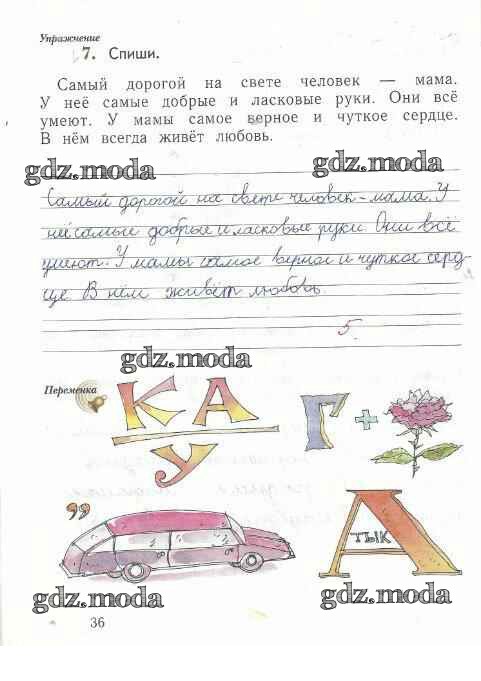 Упражнение
7. Спиши.
Самый дорогой на свете человек — мама.
У неё самые добрые и ласковые руки. Они всё
умеют. У мамы самое верное и чуткое сердце.
В нём всегда живёт любовь.
gdz.moda gdz.moda
Самый дорогой на свете человек - мама. У
неё самые добрые и ласковые руки. Они всё
умеют. У мамы самое верное и чуткое серд-
це. В нём живёт любовь.
5.
gdz.moda
Переменка
КА
У
Г +
”
А
ТЫК
gdz.moda gdz.moda
36